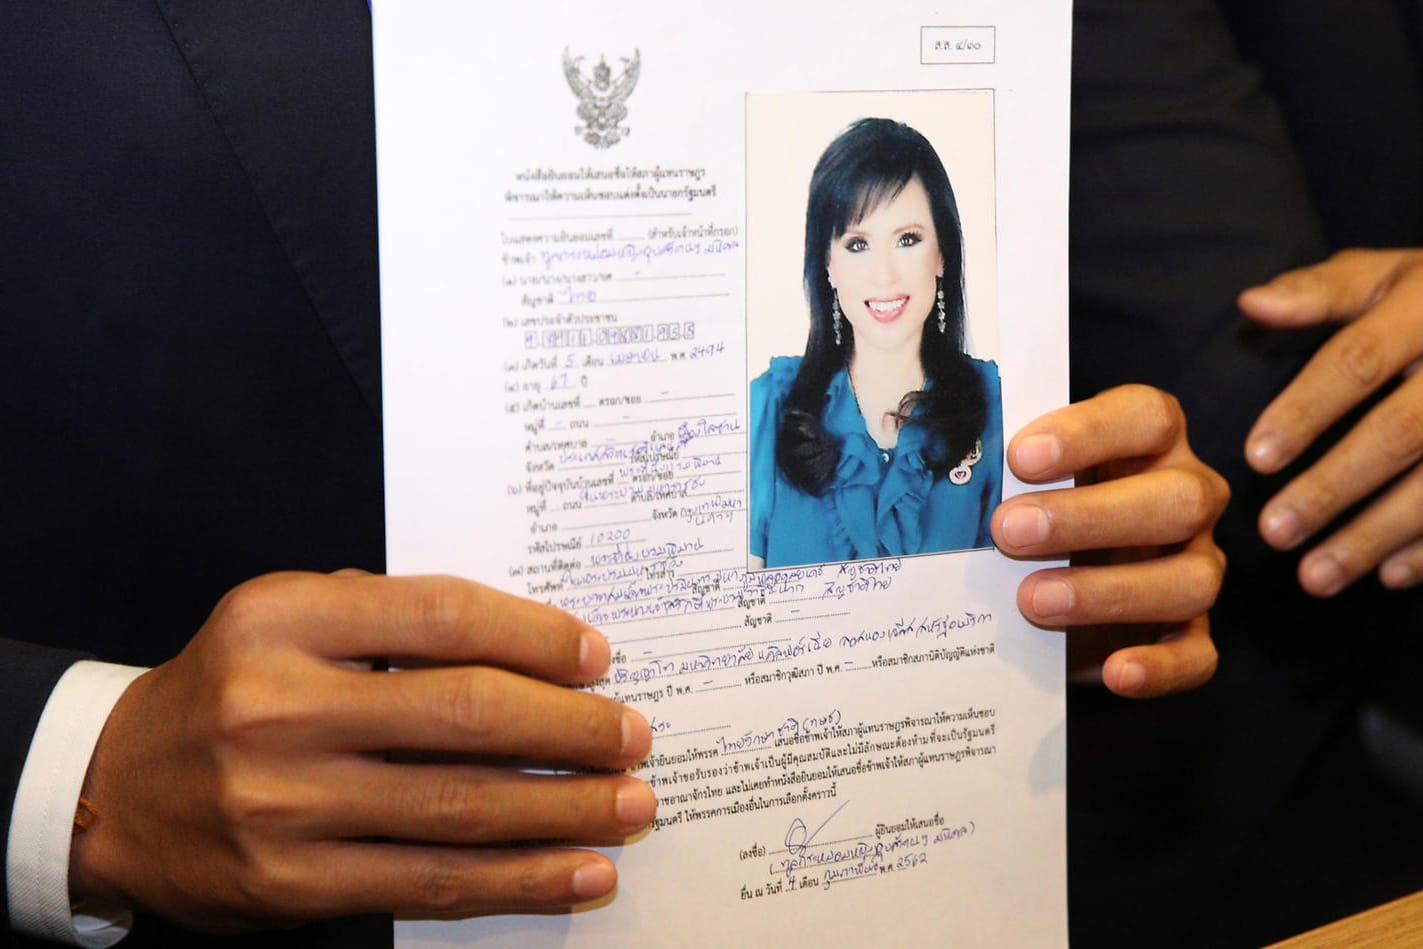 ส.ส. ๔/๓๐
หนังสือยินยอมให้เสนอชื่อให้สภาผู้แทนราษฎร
พิจารณาให้ความเห็นชอบแต่งตั้งเป็นนายกรัฐมนตรี
ใบแสดงความยินยอมเลขที่ (สำหรับเจ้าหน้าที่กรอก)
ข้าพเจ้า ทูลกระหม่อมหญิงอุบลรัตนฯ มหิดล
(๑) นาย/นาง/นางสาว/ยศ -
สัญชาติ ไทย
(๒) เลขประจำตัวประชาชน
(๓) เกิดวันที่ 5 เดือน เมษายน พ.ศ. 2494
(๔) อายุ 67 ปี
(๕) เกิดบ้านเลขที่ ตรอก/ซอย -
หมู่ที่ - ถนน -
ตำบล/เทศบาล - อำเภอ เมืองโลซาน
จังหวัด รหัสไปรษณีย์
(๖) ที่อยู่ปัจจุบันบ้านเลขที่ ตรอก/ซอย
หมู่ที่ ถนน ตำบล/เทศบาล
อำเภอ จังหวัด กรุงเทพมหา
นคร
รหัสไปรษณีย์ 10200
(๗) สถานที่ติดต่อ
โทรศัพท์ โทรสาร
สัญชาติ สัญชาติไทย
สัญชาติ สัญชาติไทย
สัญชาติ -
ชื่อ -
ปริญญาโท มหาวิทยาลัย แคลิฟอร์เนีย ลอสแองเจลีส สหรัฐอเมริกา
ผู้แทนราษฎร ปี พ.ศ. - หรือสมาชิกวุฒิสภา ปี พ.ศ. - หรือสมาชิกสภานิติบัญญัติแห่งชาติ
ข้าพเจ้ายินยอมให้พรรค ไทยรักษาชาติ (ทษช) เสนอชื่อข้าพเจ้าให้สภาผู้แทนราษฎรพิจารณาให้ความเห็นชอบ
ข้าพเจ้าขอรับรองว่าข้าพเจ้าเป็นผู้มีคุณสมบัติและไม่มีลักษณะต้องห้ามที่จะเป็นรัฐมนตรี
ราชอาณาจักรไทย และไม่เคยทำหนังสือยินยอมให้เสนอชื่อข้าพเจ้าให้สภาผู้แทนราษฎรพิจารณา
รัฐมนตรี ให้พรรคการเมืองอื่นในการเลือกตั้งคราวนี้
(ลงชื่อ) ผู้ยินยอมให้เสนอชื่อ
(ทูลกระหม่อมหญิงอุบลรัตนฯ มหิดล)
ยื่น ณ วันที่ 4 เดือน กุมภาพันธ์ พ.ศ. 2562